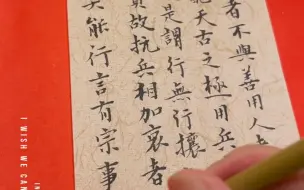 者不與善用人
天古之極用兵
是謂行無行攘
故抗兵相加哀者
能行言有宗事
I WISH WE CAN